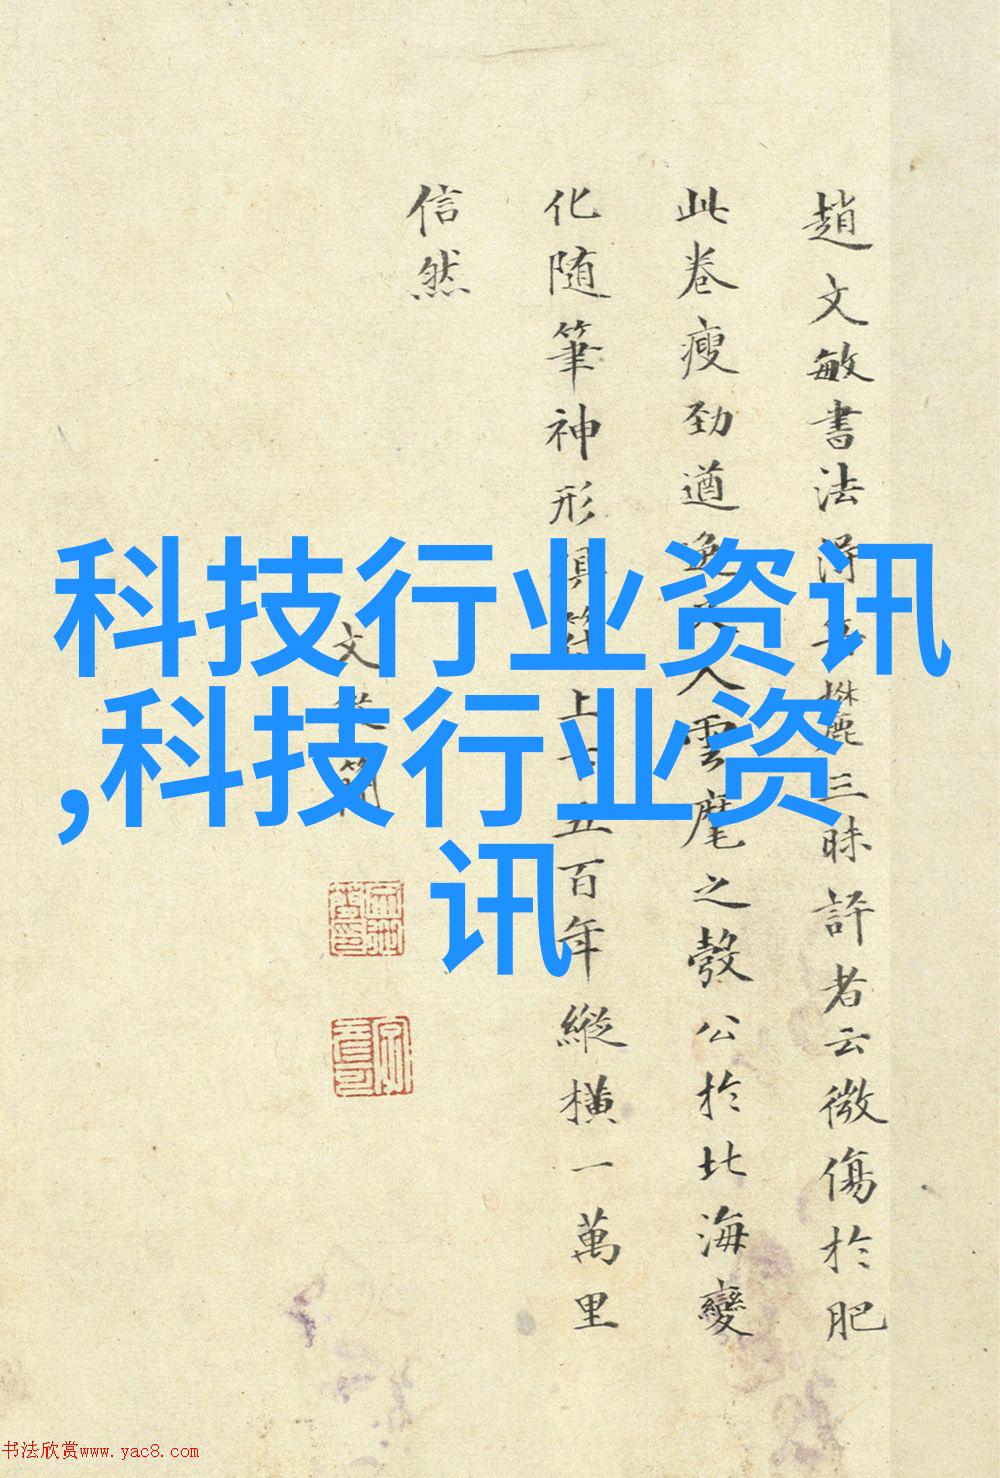 科技行业资讯
,科技行业资
讯
趙文敏書法三昧評者云微傷於肥
此卷瘦劲遒逸入雲麾之彀公於北海變
化随筆神形俱符上下五百年縱横一萬里
信然
文從簡
书法欣赏www.yac8.com